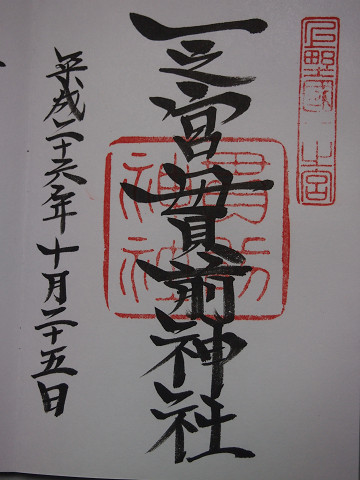 上野國一之宮
一之宮貫前神社
貫前神社
平成二十六年十月二十五日